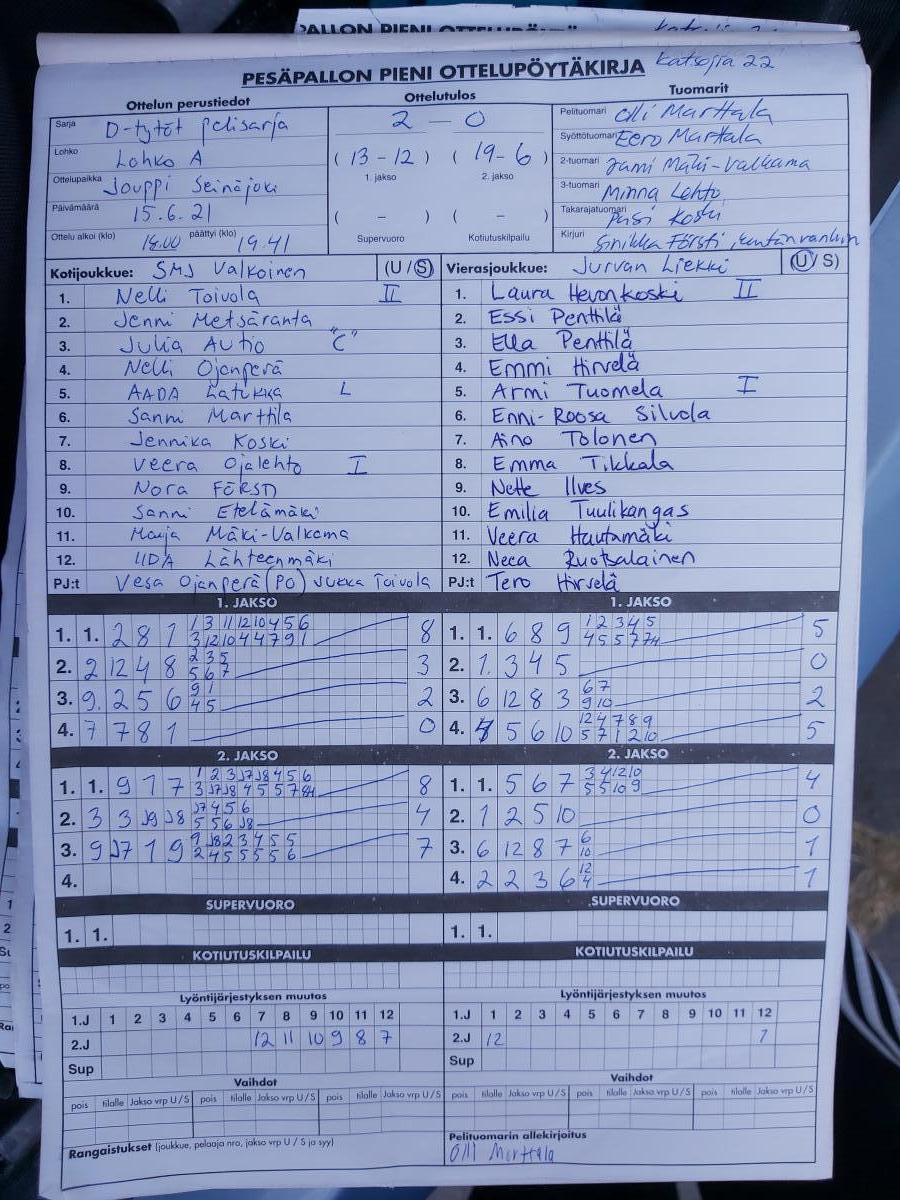 PESÄPALLON PIENI OTTELUPÖYTÄKIRJA Katsojia 22
Ottelun perustiedot
Sarja D-tytöt pelisarja
Lohko Lohko A
Ottelupaikka Jouppi Seinäjoki
Päivämäärä 15.6.21
Ottelu alkoi (klo) 18.00 päättyi (klo) 19.41
Ottelutulos
2 - 0
( 13-12 ) ( 19-6 )
1. jakso 2. jakso
( - ) ( - )
Supervuoro Kotiutuskilpailu
Tuomarit
Pelituomari Olli Marttala
Syöttötuomari Eero Marttala
2-tuomari Jami Mäki-Valkama
3-tuomari Minna Lehto
Takarajatuomari Pasi Koski
Kirjuri Sinikka Försti
Kotijoukkue: SMJ Valkoinen (U / S)
1. Nelli Toivola II
2. Jenni Metsäranta
3. Julia Autio "C"
4. Nelli Ojanperä
5. AADA Latukka L
6. Sanni Marttila
7. Jennika Koski
8. Veera Ojalehto I
9. Nora FÖRSTI
10. Sanni Etelämäki
11. Maija Mäki-Valkama
12. IIDA Lähteenmäki
PJ:t Vesa Ojanperä (PO) Jukka Toivola
Vierasjoukkue: Jurvan Liekki (U / S)
1. Laura Hevonkoski II
2. Essi Penttilä
3. Ella Penttilä
4. Emmi Hirvelä
5. Armi Tuomela I
6. Enni-Roosa Silvola
7. Aino Tolonen
8. Emma Tikkala
9. Nette Ilves
10. Emilia Tuulikangas
11. Veera Hautamäki
12. Neea Ruotsalainen
PJ:t Tero Hirvelä
1. JAKSO
1. 1. 2 8 1 8
2. 2 12 4 8 2 3 5 3
5 6 7
3. 9. 2 5 6 9 1 2
4 5
4. 7 7 8 1 0
1. JAKSO
1. 1. 6 8 9 1 2 3 4 5 5
2. 1. 3 4 5 0
3. 6 12 8 3 6 7 2
9 10
4. 5 6 10 12 4 7 8 9 5
5 7 1 2 10
2. JAKSO
1. 1. 9 1 7 8
2. 3 3 J9 J8 J7 4 5 6 4
5 5 6 J8
3. 9 J7 1 9 9 J8 2 3 4 5 5 7
2 4 5 5 5 5 6
4.
2. JAKSO
1. 1. 5 6 7 3 4 12 10 4
5 5 10 9
2. 1 2 5 10 0
3. 6 12 8 7 6 1
10
4. 2 2 3 6 12 1
4
SUPERVUORO
1. 1.
SUPERVUORO
1. 1.
KOTIUTUSKILPAILU
KOTIUTUSKILPAILU
Lyöntijärjestyksen muutos
1.J 1 2 3 4 5 6 7 8 9 10 11 12
2.J 12 11 10 9 8 7
Sup
Lyöntijärjestyksen muutos
1.J 1 2 3 4 5 6 7 8 9 10 11 12
2.J 12 1
Sup
Vaihdot
pois tilalle Jakso vrp U / S pois tilalle Jakso vrp U / S pois tilalle Jakso vrp U / S
Vaihdot
pois tilalle Jakso vrp U / S pois tilalle Jakso vrp U / S pois tilalle Jakso vrp U / S
Rangaistukset (joukkue, pelaaja nro, jakso vrp U / S ja syy)
Pelituomarin allekirjoitus
Olli Marttala